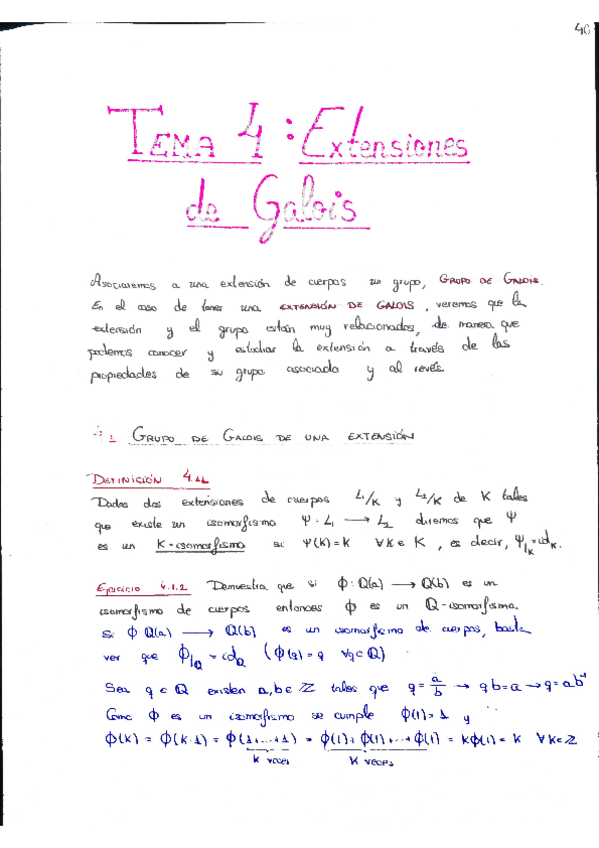 40
TEMA 4: Extensiones
de Galois
Asociaremos a una extensión de cuerpos un grupo, GRUPO DE GALOIS.
En el caso de tener una EXTENSIÓN DE GALOIS, veremos que la
extensión y el grupo están muy relacionados, de manera que
podemos conocer y estudiar la extensión a través de las
propiedades de su grupo asociado y al revés.
4.1 GRUPO DE GALOIS DE UNA EXTENSIÓN
DEFINICIÓN 4.1.1
Dadas dos extensiones de cuerpos L₁/K y L₂/K de K tales
que existe un isomorfismo Ψ: L₁ → L₂ diremos que Ψ
es un K-isomorfismo si Ψ(k)=k ∀k∈K, es decir, Ψ|K=idK.
Ejercicio 4.1.2 Demuestra que si ϕ: Q(a) → Q(b) es un
isomorfismo de cuerpos entonces ϕ es un Q-isomorfismo.
Si ϕ Q(a) → Q(b) es un isomorfismo de cuerpos, basta
ver que ϕ|Q = idQ (ϕ(q)=q ∀q∈Q)
Sea q∈Q existen a,b∈ℤ tales que q=a/b → qb=a → q=ab⁻¹
Como ϕ es un isomorfismo se cumple ϕ(1)=1 y
ϕ(k) = ϕ(k·1) = ϕ(1+...+1) = ϕ(1)+ϕ(1)+...+ϕ(1) = kϕ(1) = k ∀k∈ℤ
k veces k veces